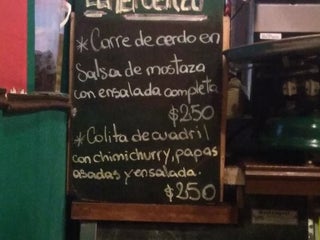 *Carre de cerdo en
Salsa de mostaza
con ensalada completa
$250
*Colita de cuadril
con chimichurry, papas
asadas y ensalada.
$250